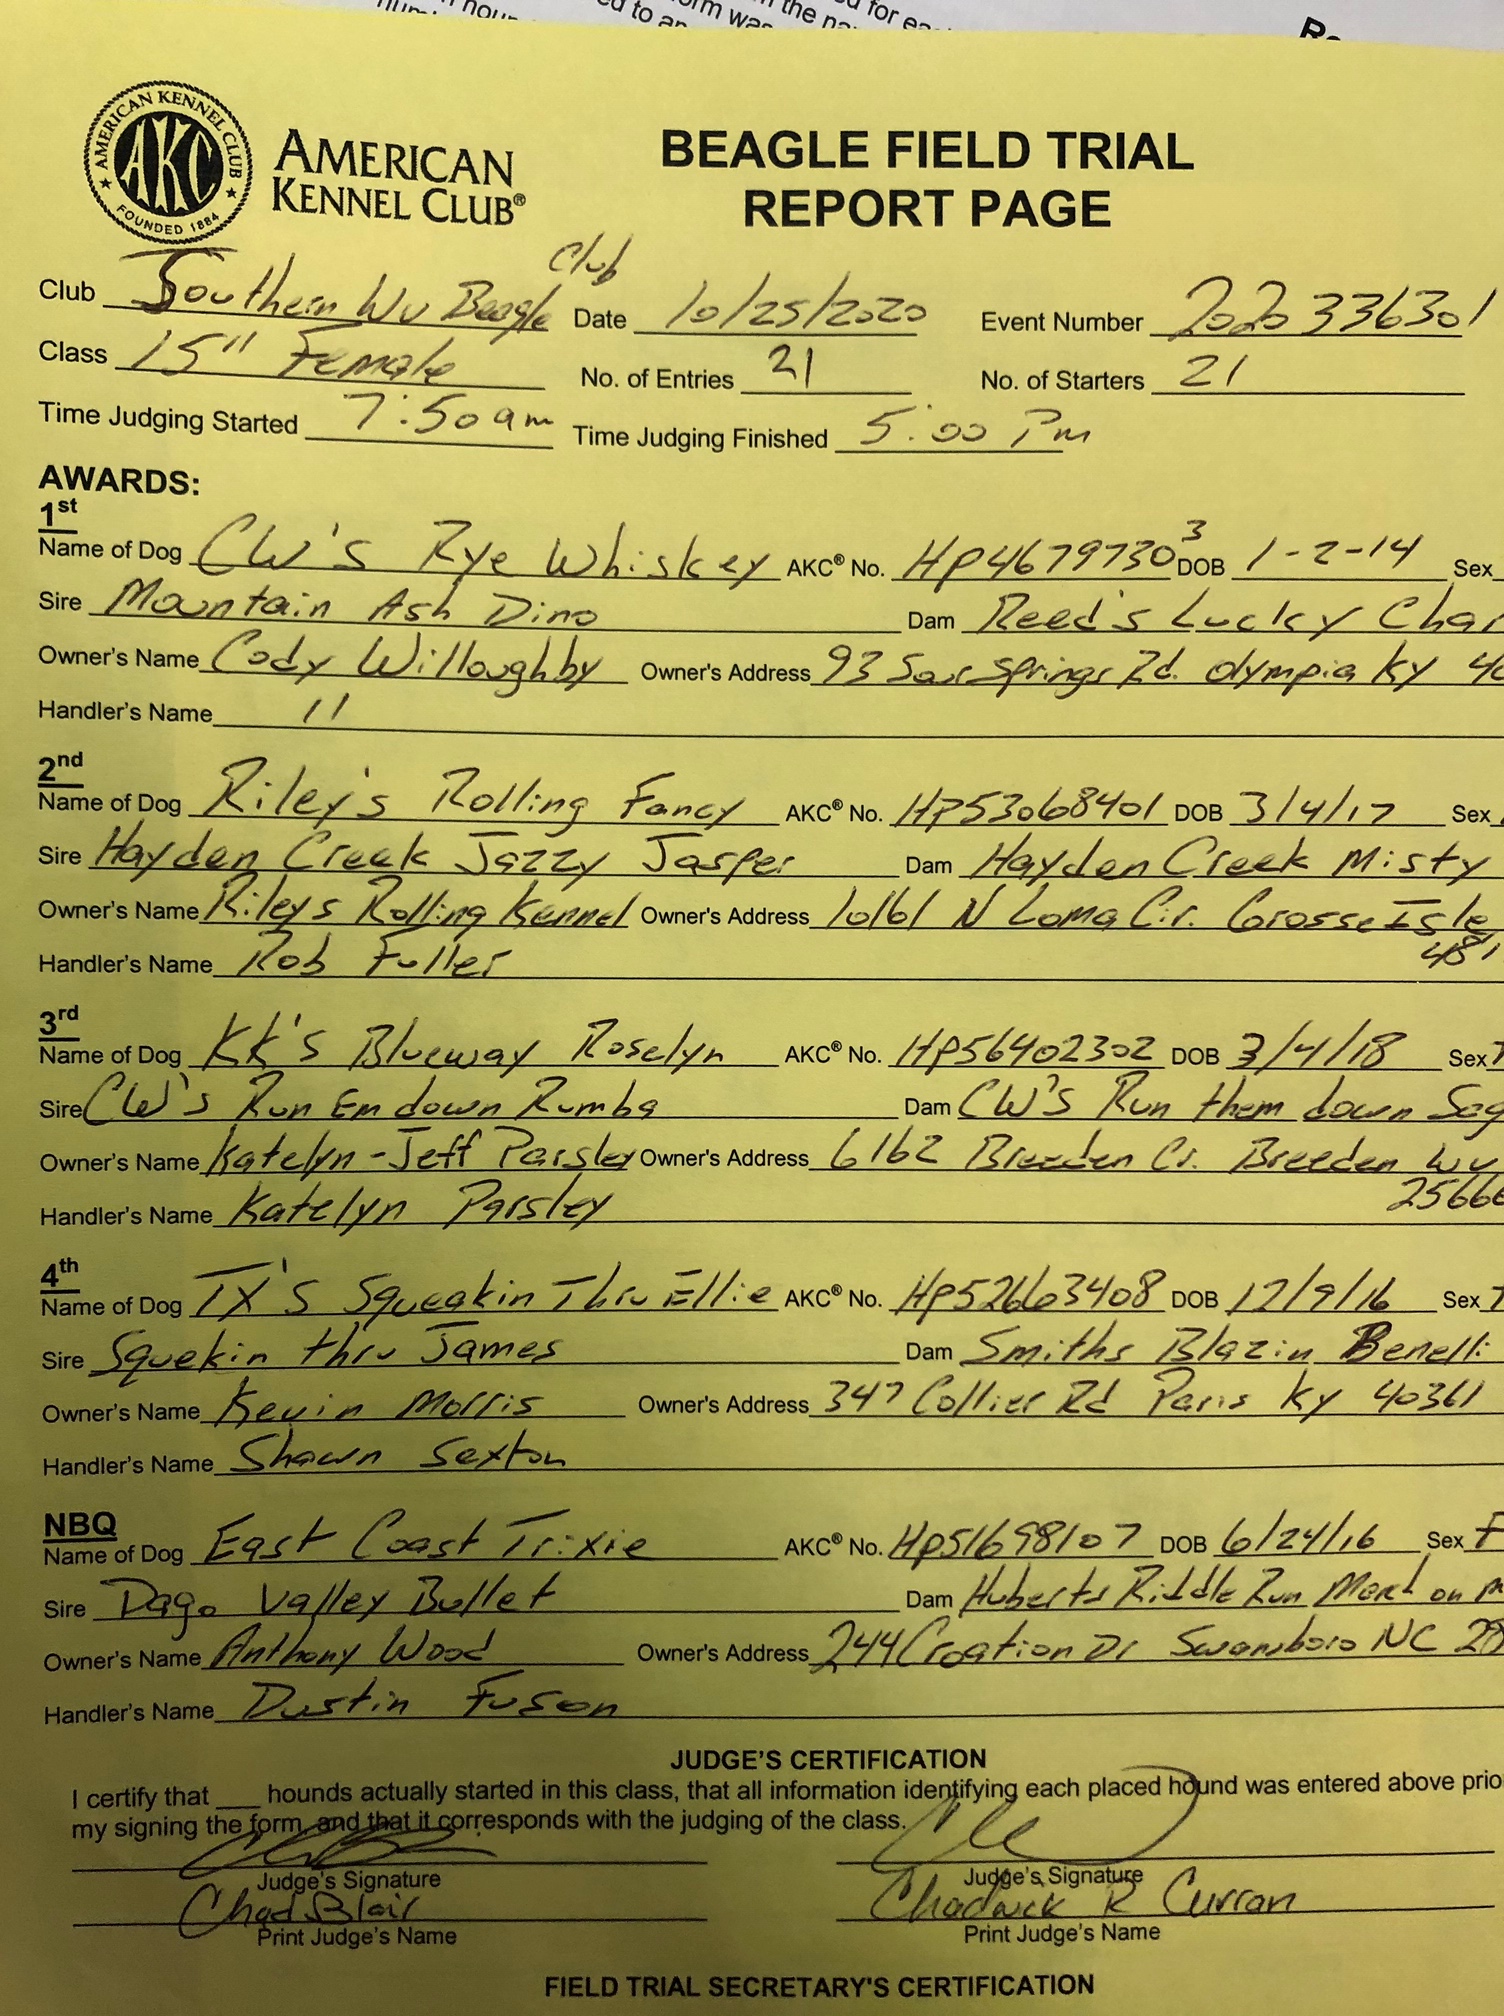 AMERICAN KENNEL CLUB
AKC
FOUNDED 1884
AMERICAN
KENNEL CLUB®
BEAGLE FIELD TRIAL
REPORT PAGE
Club Southern WV Beagle Club Date 10/25/2020 Event Number 2020336301
Class 15" Female No. of Entries 21 No. of Starters 21
Time Judging Started 7:50 am Time Judging Finished 5:00 Pm
AWARDS:
1st
Name of Dog CW's Rye Whiskey AKC® No. HP46797303 DOB 1-2-14 Sex
Sire Mountain Ash Dino Dam Reed's Lucky Char
Owner's Name Cody Willoughby Owner's Address 93 Sour Springs Rd. Olympia Ky 40
Handler's Name 11
2nd
Name of Dog Riley's Rolling Fancy AKC® No. HP53068401 DOB 3/4/17 Sex
Sire Hayden Creek Jazzy Jasper Dam Hayden Creek Misty
Owner's Name Rileys Rolling Kennel Owner's Address 10161 N Loma Cir. Grosse Isle
481
Handler's Name Rob Fuller
3rd
Name of Dog KK's Blueway Roselyn AKC® No. HP56402302 DOB 3/4/18 Sex
Sire CW's Run Em down Rumba Dam CW's Run them down Sag
Owner's Name Katelyn-Jeff Parsley Owner's Address 6162 Breeden Cr. Breeden WV
25666
Handler's Name Katelyn Parsley
4th
Name of Dog TX's Squeakin Thru Ellie AKC® No. HP52663408 DOB 12/9/16 Sex
Sire Squekin thru James Dam Smiths Blazin Benelli
Owner's Name Kevin Morris Owner's Address 347 Collier Rd Paris Ky 40361
Handler's Name Shawn Sexton
NBQ
Name of Dog East Coast Trixie AKC® No. HP51698107 DOB 6/24/16 Sex F
Sire Dago Valley Bullet Dam Huberts Riddle Run March on M
Owner's Name Anthony Wood Owner's Address 244 Croation Dr Swansboro NC 28
Handler's Name Dustin Fuson
JUDGE'S CERTIFICATION
I certify that ___ hounds actually started in this class, that all information identifying each placed hound was entered above prio
my signing the form, and that it corresponds with the judging of the class.
Judge's Signature Judge's Signature
Chad Blair Chadwick R Curran
Print Judge's Name Print Judge's Name
FIELD TRIAL SECRETARY'S CERTIFICATION